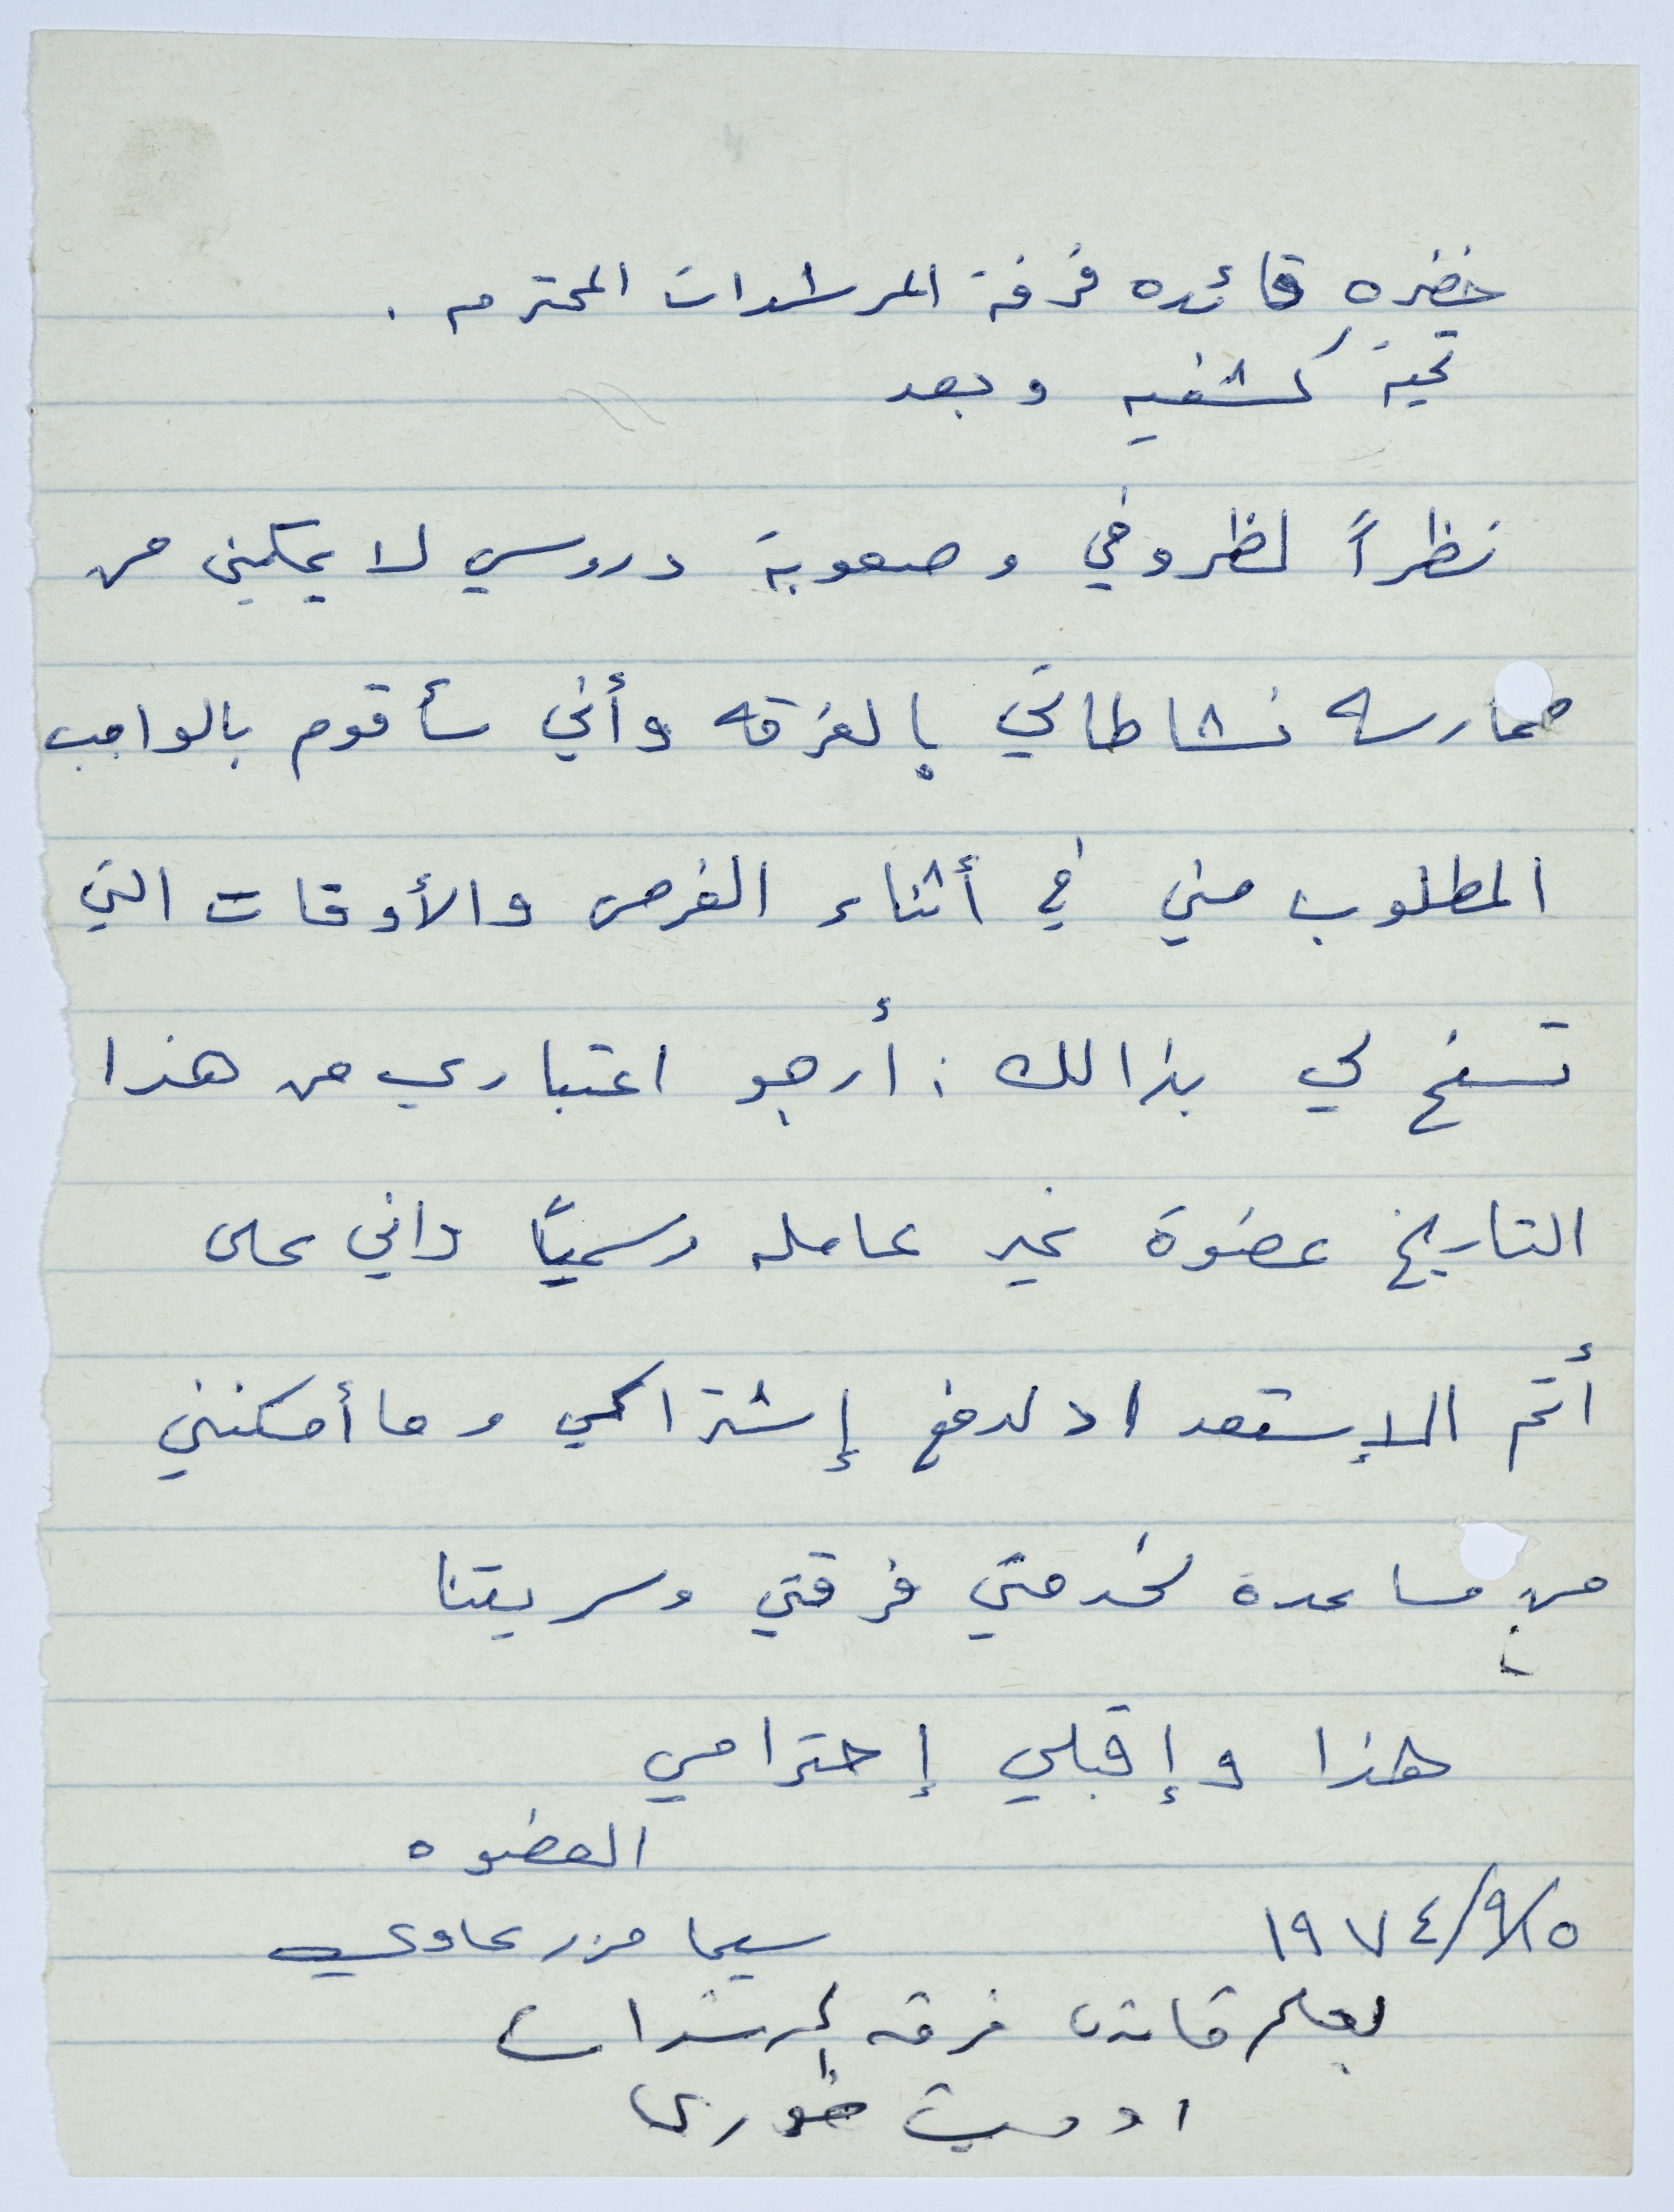 حضره قائده فرقة المرشدات المحترم .
تحية كشفيه وبعد
نظراً لظروفي وصعوبة دروسي لا يمكنني من
ممارسه نشاطاتي بالفرقه وأني سأقوم بالواجب
المطلوب مني في أثناء الفرص والأوقات التي
تسنح لي بذالك : أرجو اعتباري من هذا
التاريخ عضوة غير عامله رسمياً واني على
أتم الإستعداد لدفع إشتراكي وما أمكنني
من مساعدة لخدمتي فرقتي وسريتنا
هذا وإقبلي إحترامي
العضوه
١٩٧٤/٩/٥ سيما مزرعاوي
قائدة فرقه المرشدات
اوديت خوري